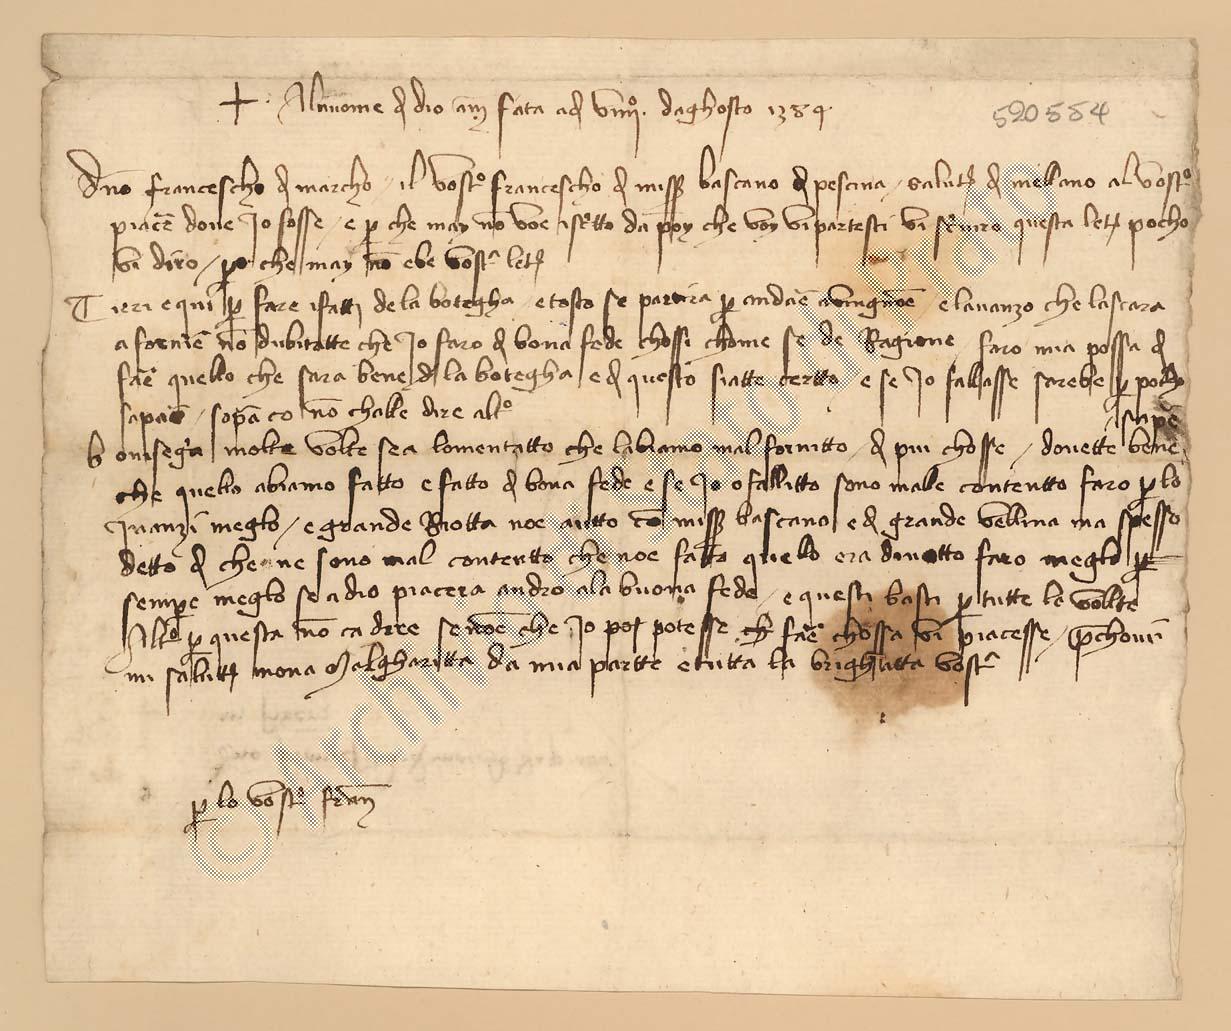 + Al nnome d dio am fata ad viiij. daghosto 1384
520554
Dno francescho d marcho / il vostro francescho d miss bascano d pescina / salut d mellano al vostro
piacē dove Jo fosse / e p che may nō voe iscrtto da poy che voy vi partesti vi scrivro questa let pocho
vi diro / po che may nō ebe vost let
Tieri equi p fare i fatti de la botegha / e tosto se partira p andaē a vingnōe / e lavanzo che lascara
a forniē nō dubitatte che Jo faro d bona fede chossi chome se de Ragione / faro mia possa d
faē quello che sara bene d la botegha e d questo siatte certto e se Jo fallasse sarebe p pocho
sapaē / sopa co nō challe dire alto
Bonisegā molte volte se a lomentatto che labiamo mal fornitto / d piu chosse / dovette bene sapē
che quello abiamo fatto e fatto d bona fede e se Jo o fallitto sono malle contentto faro p lo
Jnanzi meglo / e grande Riotta noe autto cō miss bascano e d grande vellina ma spesso
detto d che ne sono mal contentto che noe fatto quello era dovutto faro meglo p
sempe meglo se a dio piacera andro a la buona fede / e questi basti p tutte le vollte
Alto p questa nō ca diree se nōe che Jo pos potesse ch faē chossa vi piacesse /
mi salutt mona Malgharitta da mia partte e tutta la brighatta vost
p lo vostro fran
© Archivio di Stato di Prato